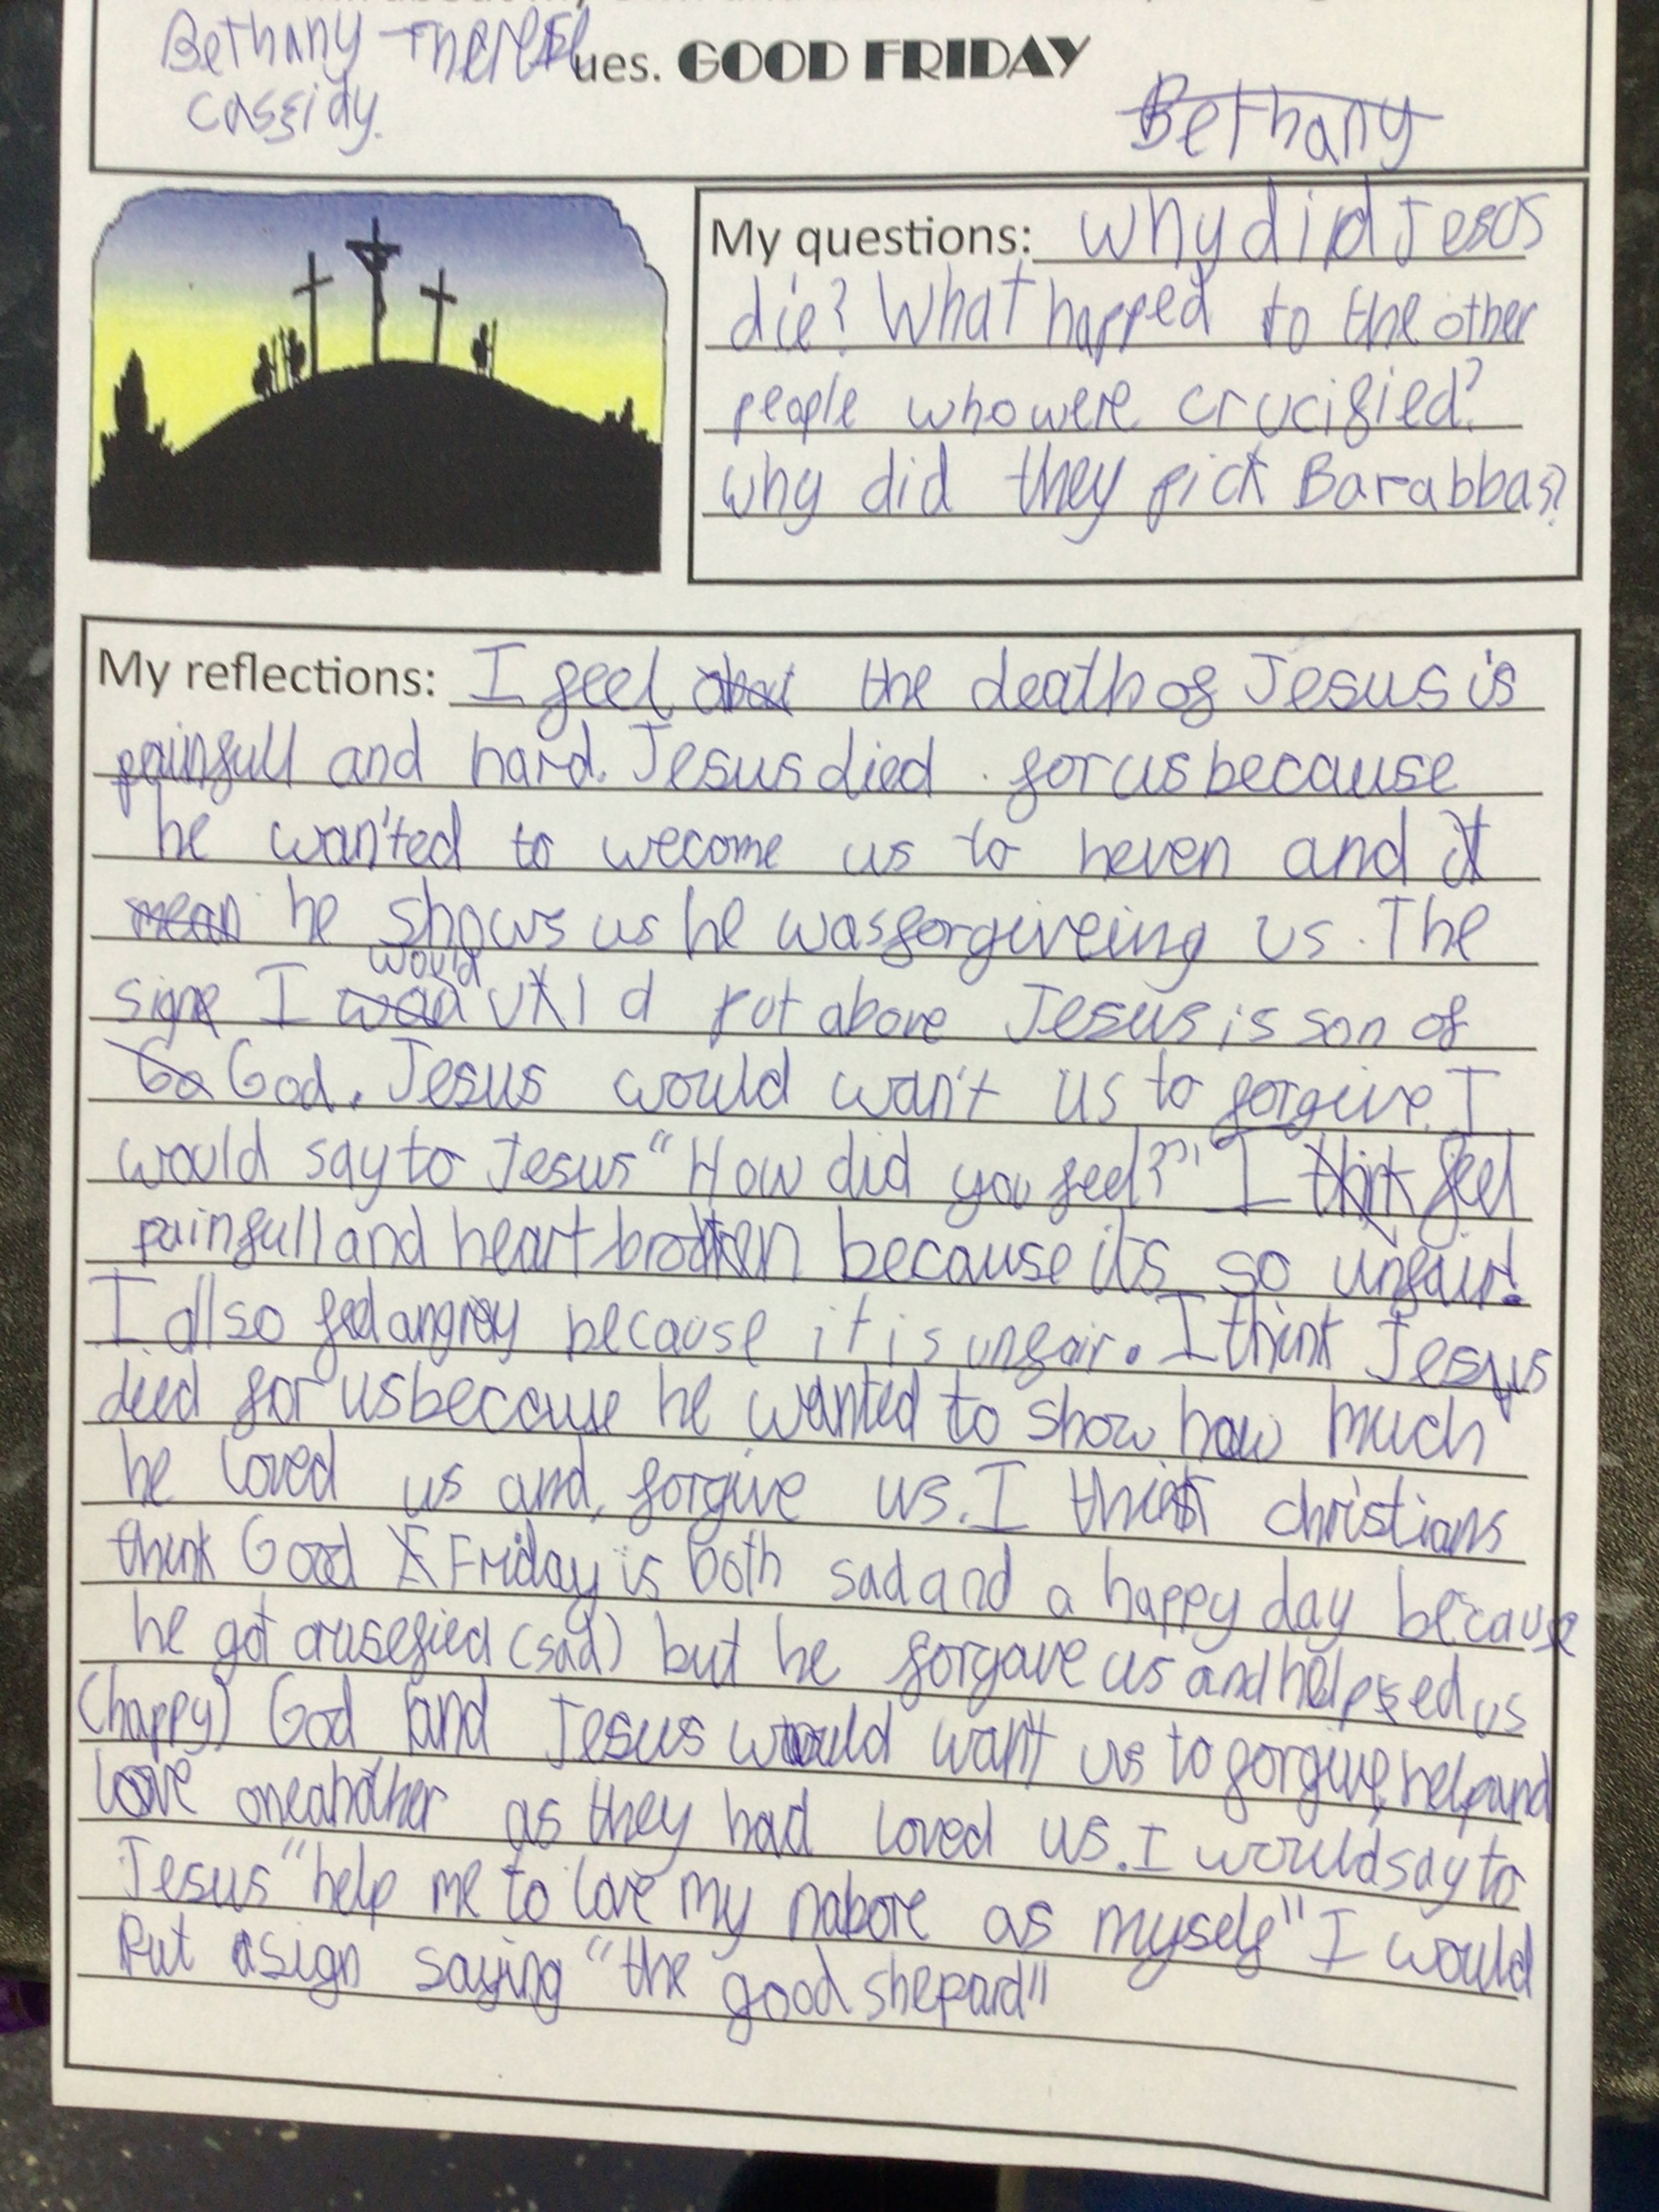 Bethany-Therese
ues. GOOD FRIDAY
Cassidy.
Bethany
My questions: why did Jesus
die? What happed to the other
people who were crucified?
why did they pick Barabbas?
My reflections: I feel the death of Jesus is
painfull and hard. Jesus died for us because
he wan'ted to wecome us to heven and it
mean he shows us he was forgiveing us. The
sign I would put above Jesus is son of
Go God. Jesus would wan't us to forgive. I
would say to Jesus "How did you feel?" I think feel
painfull and heart broken because its so unfair!
I allso feel angrey because it is unfair. I think Jesus
died for us because he wanted to show how much
he loved us and, forgive us. I think christians
think Good F Friday is both sad and a happy day because
he got crusefied (sad) but he forgave us and helped us
(happy) God and Jesus would want us to forgive, help and
love oneanother as they had loved us. I would say to
Jesus "help me to love my nabore as myself" I would
Put a sign saying "the good shepard"